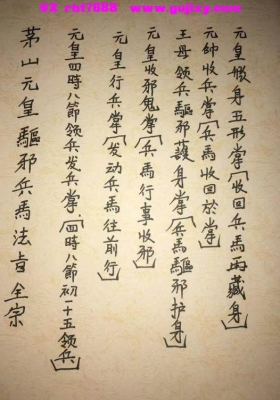 QQ rbf/688 www.gujtsy.com
元皇檄身五形掌[收回兵馬而藏身]
元帥收兵掌[兵馬收回於掌]
王母領兵驅邪護身掌[兵馬驅邪护身]
元皇收邪鬼掌[兵馬行事收邪]
元皇行兵掌[发动兵馬往前行]
元皇四時八節領兵发兵掌.[四時八節初一十五領兵]
茅山元皇驅邪兵馬法旨全宗